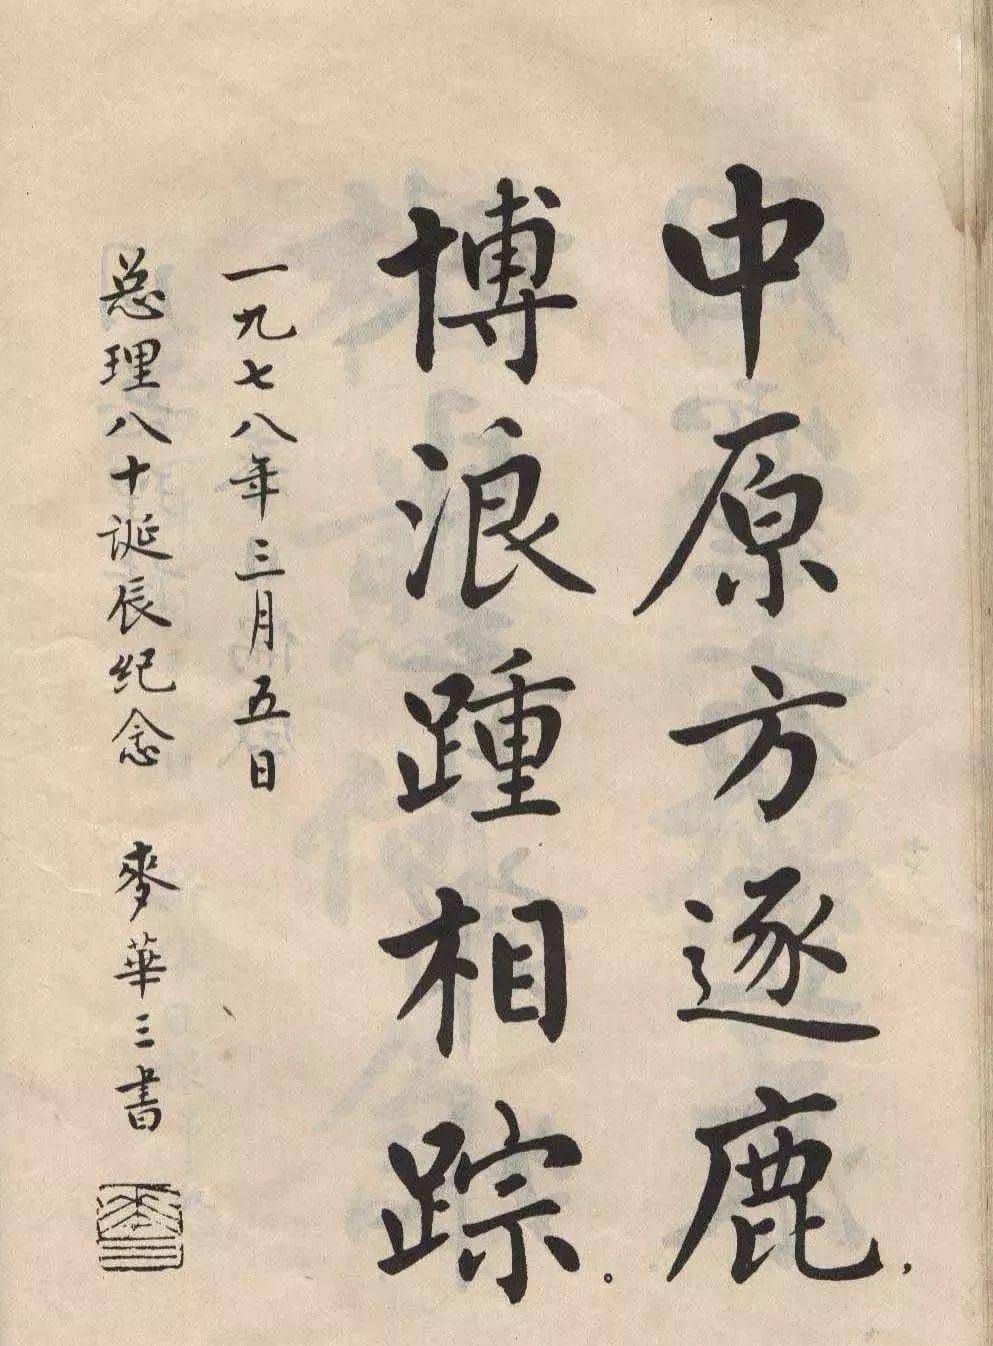 中原方逐鹿，
博浪踵相踪。
一九七八年三月五日
总理八十诞辰纪念 麥華三書